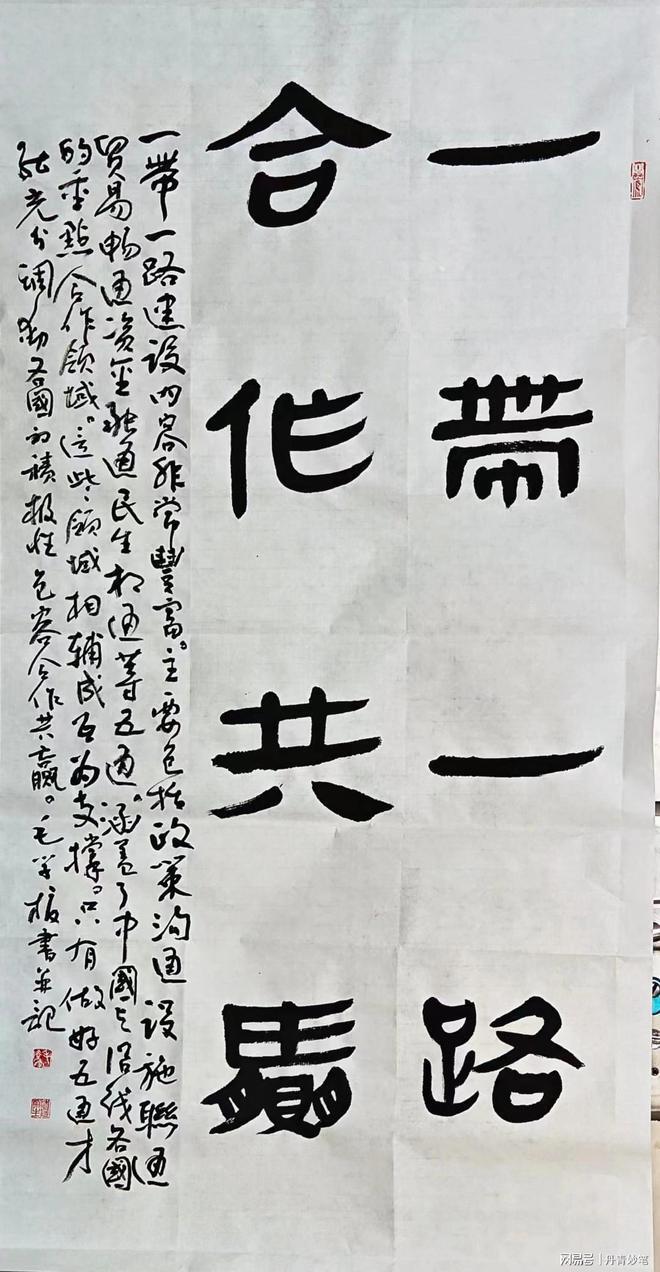 一帶一路
合作共贏
一帶一路建设内容非常豐富。主要包括政策沟通设施聯通
贸易畅通资金融通民生相通等五通。涵盖了中國与沿线各國
的重點合作领域。这些领域相辅成互为支撑。只有做好五通才
能充分调动各國的積极性包容合作共贏。毛書并記
网易号 | 丹青妙笔